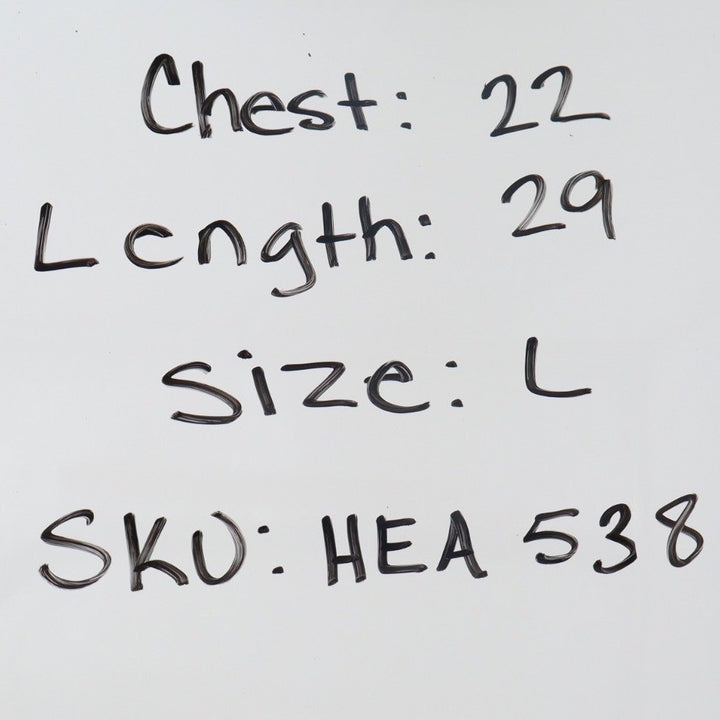 Chest: 22
Length: 29
Size: L
SKU: HEA 538